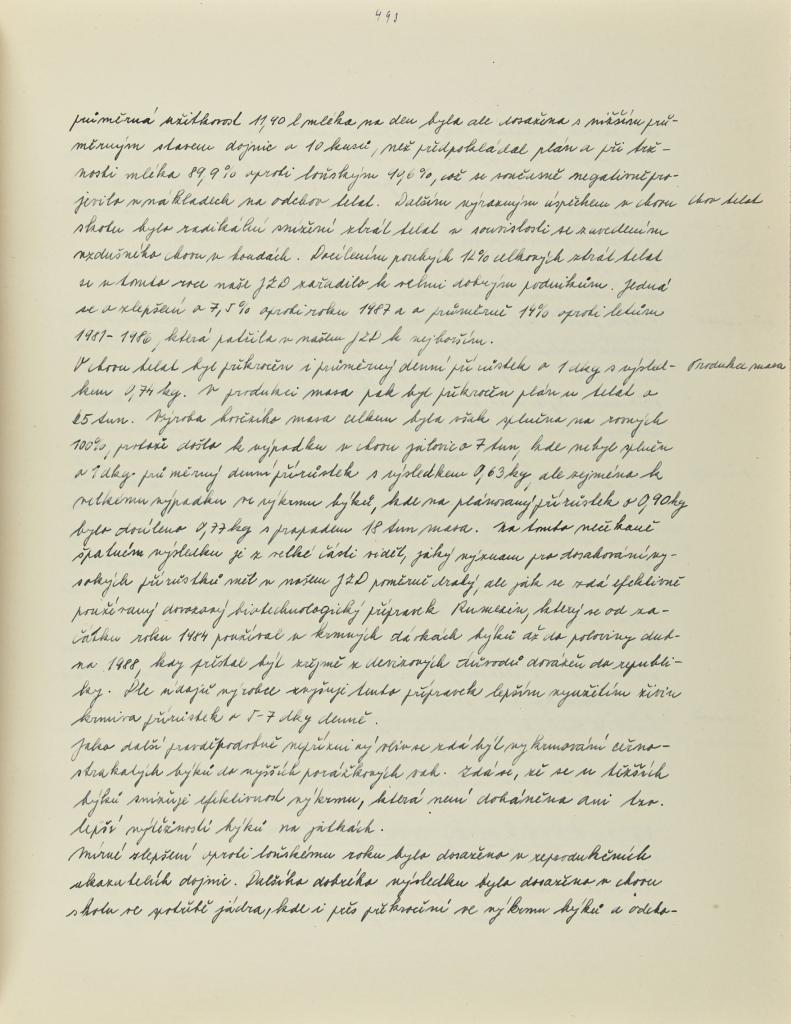 493
průměrná užitkovost 11,40 l mléka na den byla ale dosažena s nižším prů-
měrným stavem dojnic o 10 kusů, než předpokládal plán a při trž-
nosti mléka 89,9% oproti loňským 90,6%, což se současně negativně pro-
jevilo v nákladech na odchov telat. Dalším výrazným úspěchem v chovu
chov telat
skotu bylo radikální snížení ztrát telat v souvislosti se zavedením
vzdušného chovu v boudách. Docílením pouhých 12% celkových ztrát telat
se v tomto roce naše JZD zařadilo k velmi dobrým podnikům. Jedná
se o zlepšení o 7,5% oproti roku 1987 a o průměrně 14% oproti letům
1981-1986, která patřila v našem JZD k nejhorším.
V chovu telat byl překročen i průměrný denní přírůstek o 1 dkg s výsled-
Produkce masa
kem 0,74 kg. V produkci masa pak byl překročen plán u telat o
25 tun. Výroba hovězího masa celkem byla však splněna na rovných
100%, protože došlo k výpadku v chovu jalovic o 7 tun, kde nebyl splněn
o 1 dkg průměrný denní přírůstek s výsledkem 0,63 kg, ale zejména k
velkému výpadku ve výkrmu býků, kde na plánovaný přírůstek o 0,90 kg
bylo docíleno 0,77 kg s propadem 18 tun masa. Na tomto nečekaně
špatném výsledku je z velké části vidět, jaký význam pro dosahování vy-
sokých přírůstků měl v našem JZD poměrně drahý, ale jak se zdá efektivně
používaný dovozový biotechnologický přípravek Rumensin, který se od za-
čátku roku 1984 používal v krmných dávkách býků až do poloviny dub-
na 1988, kdy přestal být zřejmě z devizových důvodů dovážen do republi-
ky. Dle údajů výrobce zvyšuje tento přípravek lepším využitím živin
krmiva přírůstek o 5-7 dkg denně.
Jako další pravděpodobně nepříznivý vliv se zdá být vykrmování černo-
strakatých býků do vyšších porážkových vah. Zdá se, že se u těžších
býků snižuje efektivnost výkrmu, která není doháněna ani tzv.
lepší výtěžností býků na jatkách.
Mírné zlepšení oproti loňskému roku bylo dosaženo v reprodukčních
ukazatelích dojnic. Dalšího dobrého výsledku bylo dosaženo v chovu
skotu ve spotřebě jádra, kde i přes překročení ve výkrmu býků a odcho-